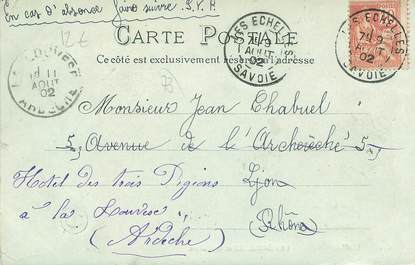 En cas d'absence faire suivre. S.V.P.
12 €
CARTE POSTALE
Ce côté est exclusivement réservé à l'adresse
LES ECHELLES
7E 9
AOUT
02
SAVOIE
LES ECHELLES
7E 9
AOUT
02
SAVOIE
LALOUVESC
11
AOUT
02
ARDECHE
Monsieur Jean Chabuel
5, Avenue de l'Archevêché 5,
Hotel des trois Pigeons Lyon
à la Louvesc, Rhône
(Ardèche)